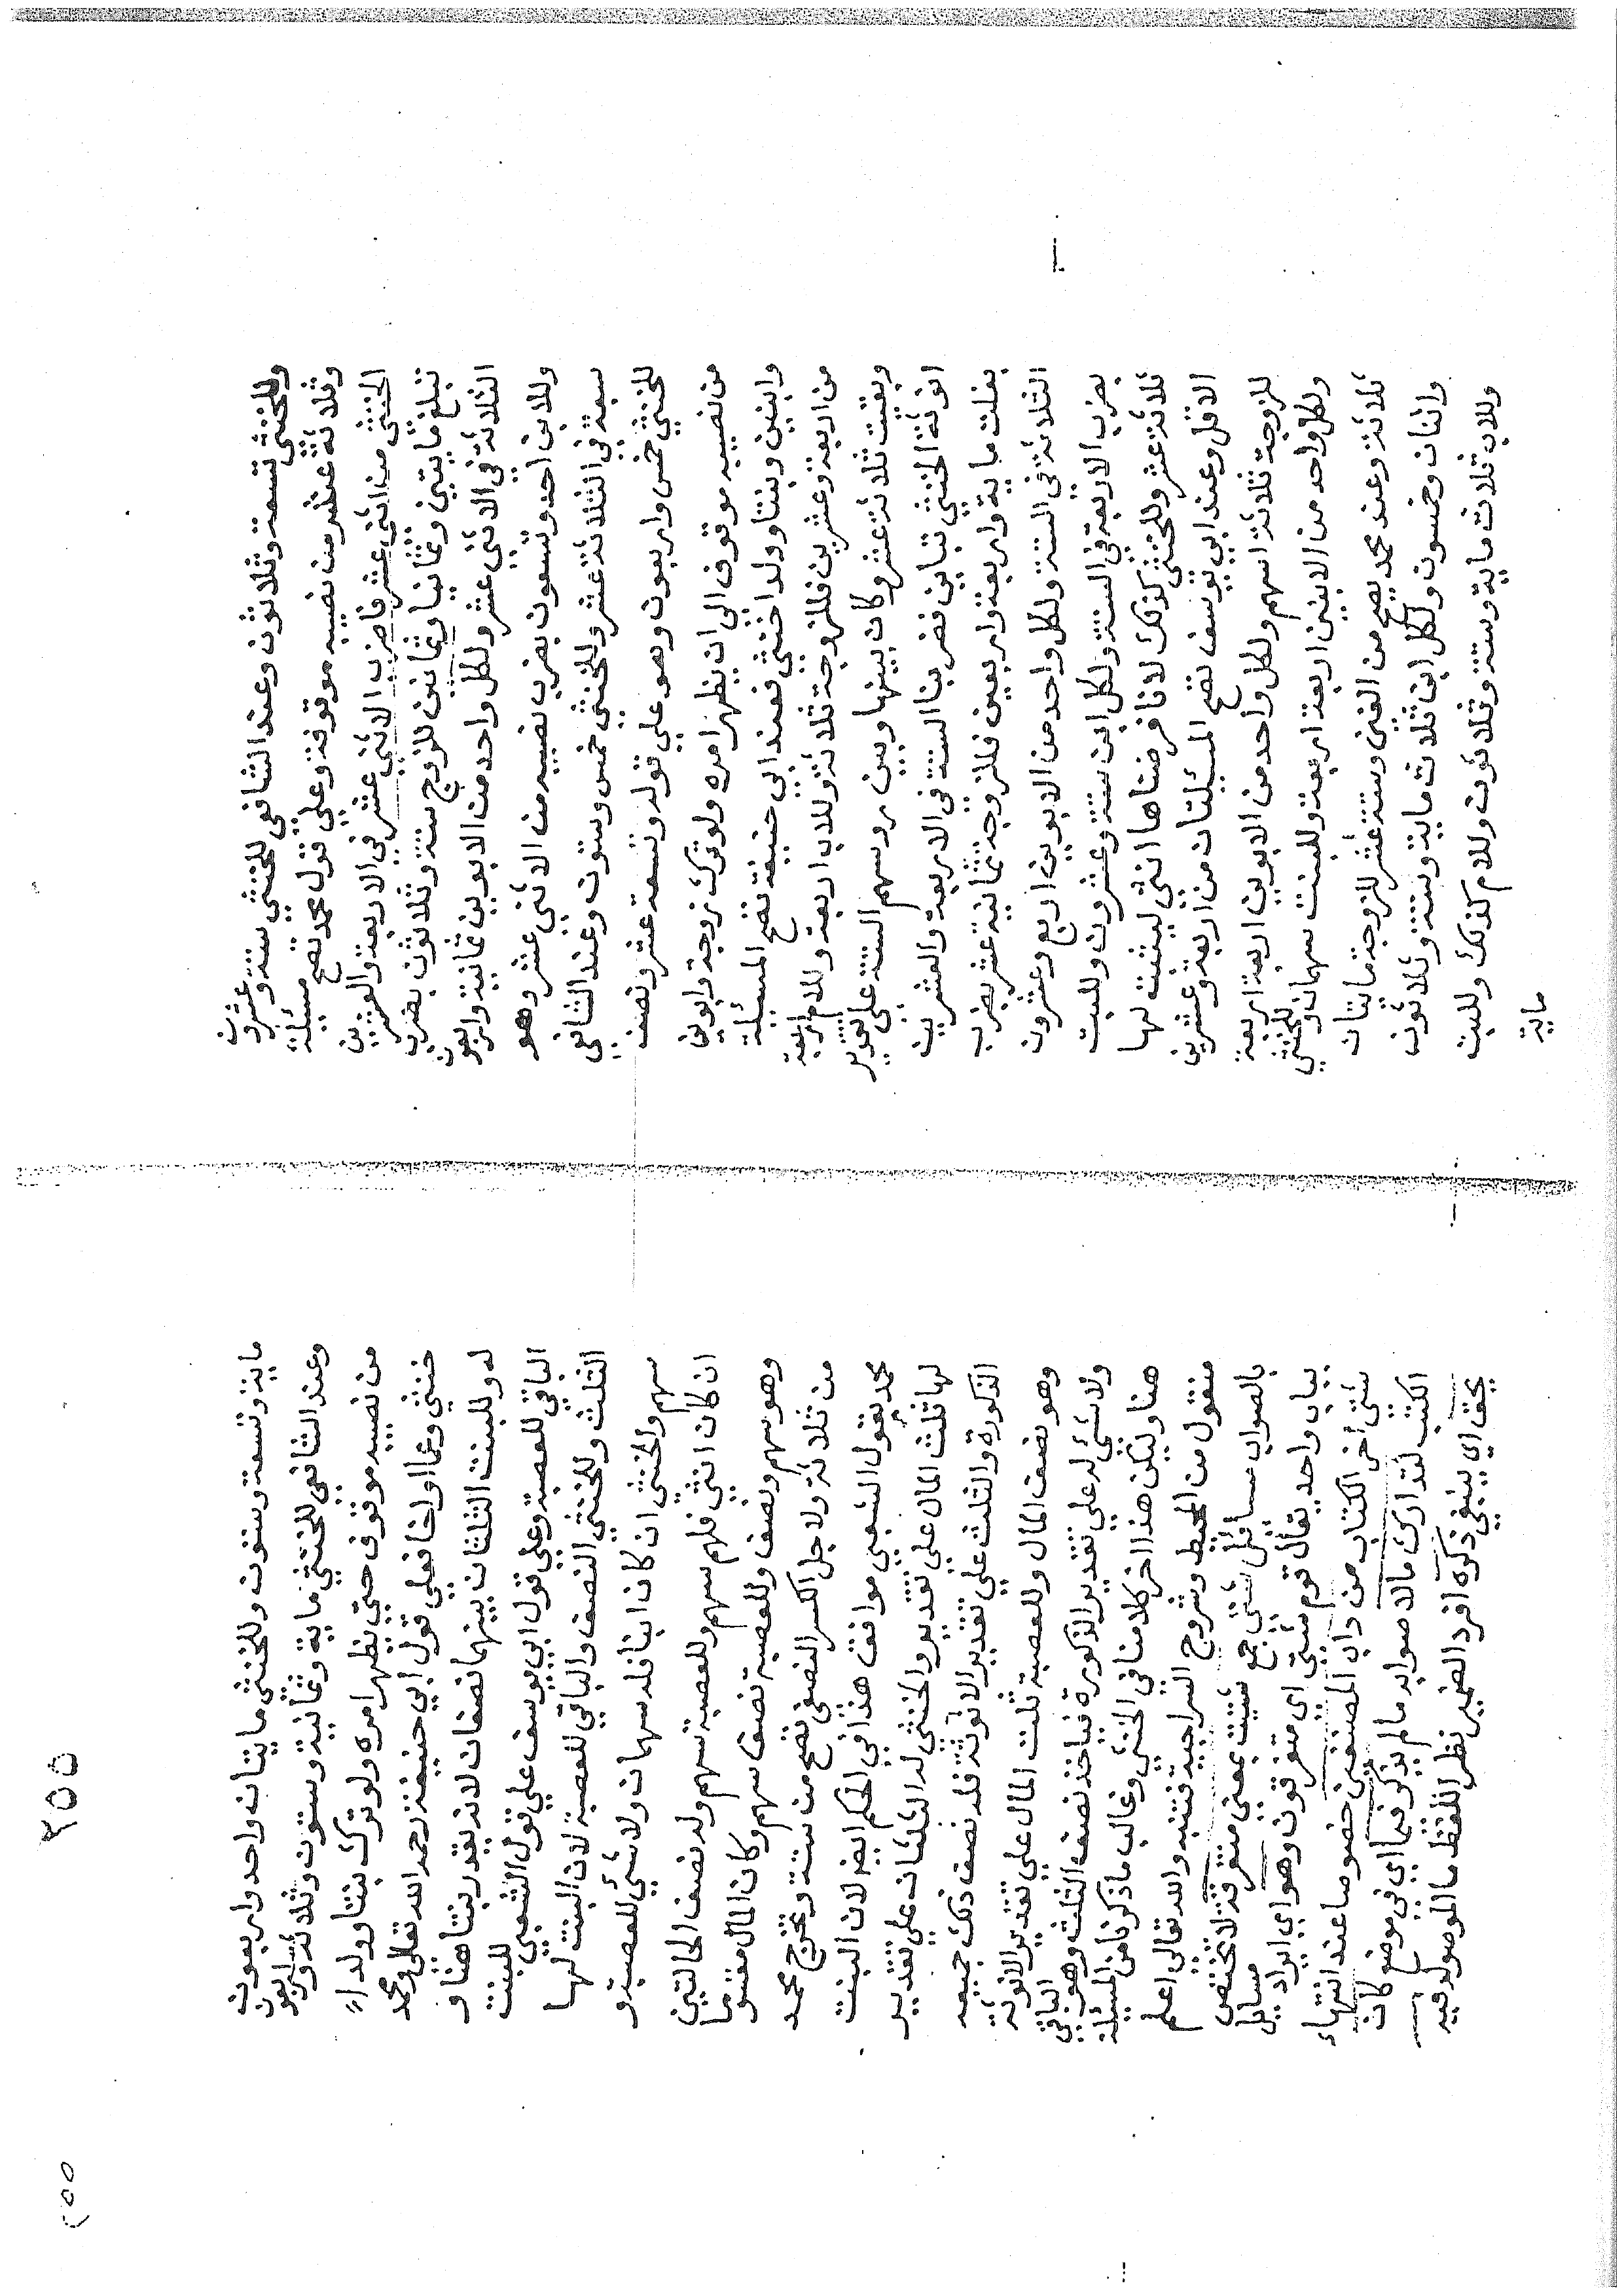 وللخنثى تسعة وثلاثون وعند الشافعي للخنثى ستة وعشرون
وثلاثة عشر من نصيبه موقوفة وعلي قول محمد تصح مسئلة
الخنثى من اثني عشر فاضرب الاثني عشر في الاربعة والعشرين
تبلغ مايتين وثمانيا وثمانين للزوج ستة وثلاثون بضرب
الثلاثة في الاثني عشر ولكل واحد من الابوين ثمانية واربعون
وللابن احد وتسعون بضرب نصيبه من الاثني عشر وهو
سبعة في الثلاثة عشر وللخنثى خمس وستون وعند الشافعي
للخنثي خمس واربعون وهو علي قوله وتسعة عشر ونصف
من نصيبه موقوف الى ان يظهر امره ولو ترك زوجة وابوين
وابنين وبنتا وولدا خنثي فعند ابي حنيفة تصح المسئلة
من اربعة وعشرين فللزوجة ثلاثة وللاب اربعة وللام اربعة
وبقيت ثلاثة عشر وكان بينها وبين روسهم الستة على تقدير
انوثة الخنثي تباين فضربنا الستة في الاربعة والعشرين
بغلت ماية واربعة واربعين فللزوجة ثمانية عشر بضرب
الثلاثة في الستة ولكل واحد من الابوين اربع وعشرون
بضرب الاربعة في الستة ولكل ابن ستة وعشرون وللبنت
ثلاثة عشر وللخنثي كذلك لانا فرضناها انثي ليثبت لها
الاقل وعند ابي يوسف تصح المسئلتان من اربعة وعشرين
للزوجة ثلاثة اسهم ولكل واحد من الابوين اربعة اربعة
ولكل واحد من الابنين اربعة اربعة وللبنت سهمان وللخنثي
ثلاثة وعند محمد يصح من الفين وستة عشر للزوجة مائتان
واثنان وخمسون ولكل ابن ثلاث ماية وستة وثلاثون
وللاب ثلاث ماية وستة وثلاثون وللام كذلك وللبنت
ماية
٢٥٥
٢٥٥
ماية وتسعة وستون وللخنثى مايتان واحد واربعون
وعند الشافعي للخنثي ماية وثمانية وستون وثلاثة واربعون
من نصيبه موقوف حتى يظهر امره ولو ترك بنتا وولدا
خنثي وعما او اخا فعلي قول ابي حنيفة رحمه الله تعالى ومحمد
له وللبنت الثلثان بينهما نصفان لانه يقدر بنتا هنا و
الباقي للعصبة وعلي قول ابي يوسف علي قول الشعبي للبنت
الثلث وللخنثي النصف والباقي للعصبة لان البنت لها
سهم والخنثى ان كان ابنا فله سهمان ولا شيء للعصبة و
ان كان انثي فلهم سهم وللعصبة سهم وله نصف الحالتين
وهو سهم ونصف وللعصبة نصف سهم وكان المال مقسوما
من ثلاثة ولاجل الكسر النصفي تصح من ستة وتخرج محمد
محمد بقول الشعبي موافق هذا في الحكم ايضا لان البنت
لها ثلث المال علي تقدير والخنثي له الثلثان علي تقدير
الذكورة والثلث علي تقدير الانوثة فله نصف ذلك جميعه
وهو نصف المال وللعصبة ثلث المال علي تقدير الانوثة
ولا شيء له علي تقدير الذكورة فياخذ نصف الثلث وهو الباقي
هنا وليكن هذا اخر كلامنا في الخنثي وغالب ما ذكرنا من المسئلة
منقول من المحيط وشروح السراجية فتنبه والله تعالى اعلم
بالصواب مسائل شتى جمع شتيت بمعنى متفرقة لا تختص
بباب واحد يقال قوم شتى اي متفرقون وهو اي ايراد مسايل
شتى اخر الكتاب من داب المصنفين خصوصا عند انتهاء
الكتب لتدارك مالا صوابه مالم يذكر فيما اي في موضع كان
يحق اي ينبغي ذكره افرد الضمير نظر اللفظ ما الموصولة فيه